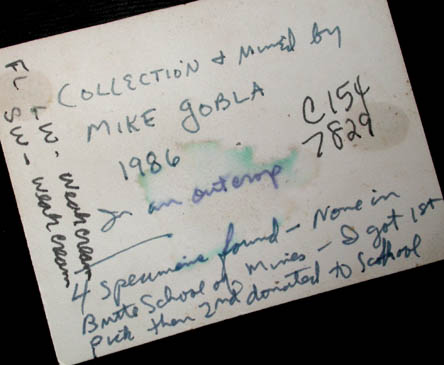 COLLECTION & Mined by
MIKE GOBLA
1986
In an outcrop
C154
7829
4 specimens found - None in
Butte School of Mines - I got 1st
pick then 2nd donated to School
FL LW - weak cream
SW - weak cream